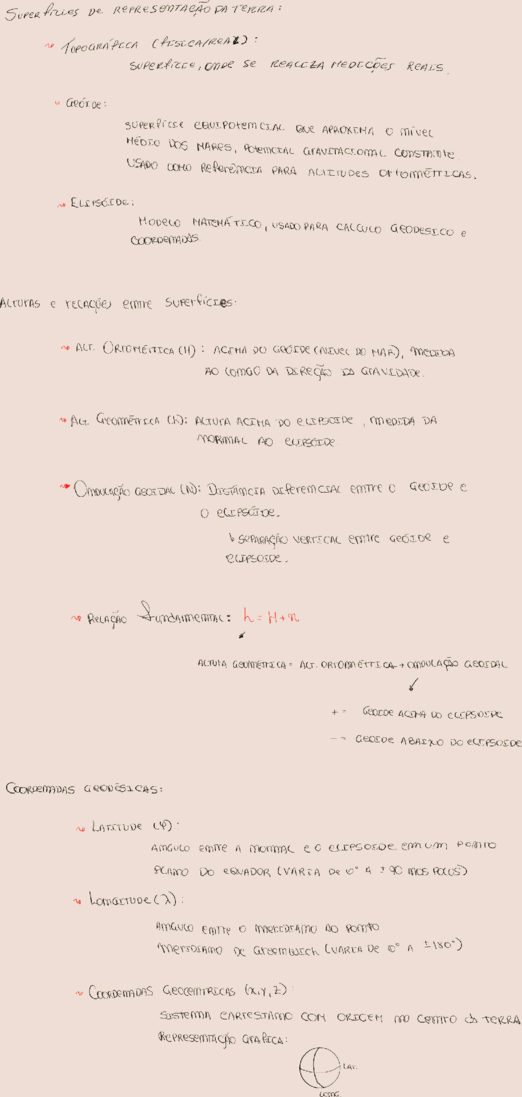 SUPERFÍCIES DE REPRESENTAÇÃO DA TERRA:
TOPOGRÁFICA (FÍSICA/REAL):
SUPERFÍCIE, ONDE SE REALIZA MEDIÇÕES REAIS.
GEÓIDE:
SUPERFÍCIE EQUIPOTENCIAL QUE APROXIMA O NÍVEL
MÉDIO DOS MARES, POTENCIAL GRAVITACIONAL CONSTANTE
USADO COMO REFERÊNCIA PARA ALTITUDES ORTOMÉTRICAS.
ELIPSÓIDE:
MODELO MATEMÁTICO, USADO PARA CALCULO GEODESICO E
COORDENADAS
ALTURAS E RELAÇÃO ENTRE SUPERFÍCIES:
ALT. ORTOMÉTRICA (H): ACIMA DO GEÓIDE (NIVEL DO MAR), MEDIDA
AO LONGO DA DIREÇÃO DA GRAVIDADE.
ALT. GEOMÉTRICA (h): ALTURA ACIMA DO ELIPSOIDE, MEDIDA DA
NORMAL AO ELIPSÓIDE
ONDULAÇÃO GEOIDAL (N): DISTÂNCIA DIFERENCIAL ENTRE O GEOIDE E
O ELIPSÓIDE.
↳ SUPARAÇÃO VERTICAL ENTRE GEÓIDE E
ELIPSOIDE.
RELAÇÃO FUNDAMENTAL: h = H + n
ALTURA GEOMÉTRICA = ALT. ORTOMÉTTICA + ONDULAÇÃO GEOIDAL
+ = GEOIDE ACIMA DO ELIPSOIDE
- = GEOIDE ABAIXO DO ELIPSOIDE
COORDENADAS GEODÉSICAS:
LATITUDE (φ):
ANGULO ENTRE A NORMAL E O ELIPSOIDE EM UM PONTO
PLANO DO EQUADOR (VARIA DE 0° A ±90 NOS POLOS)
LONGITUDE (λ):
ANGULO ENTRE O MERIDIANO AO PONTO
MERIDIANO DE GREENWICH (VARIA DE 0° A ±180°)
COORDENADAS GEOCENTRICAS (X,Y,Z):
SISTEMA CARTESIANO COM ORIGEM NO CENTRO DA TERRA
REPRESENTAÇÃO GRAFICA:
LAT.
LONG